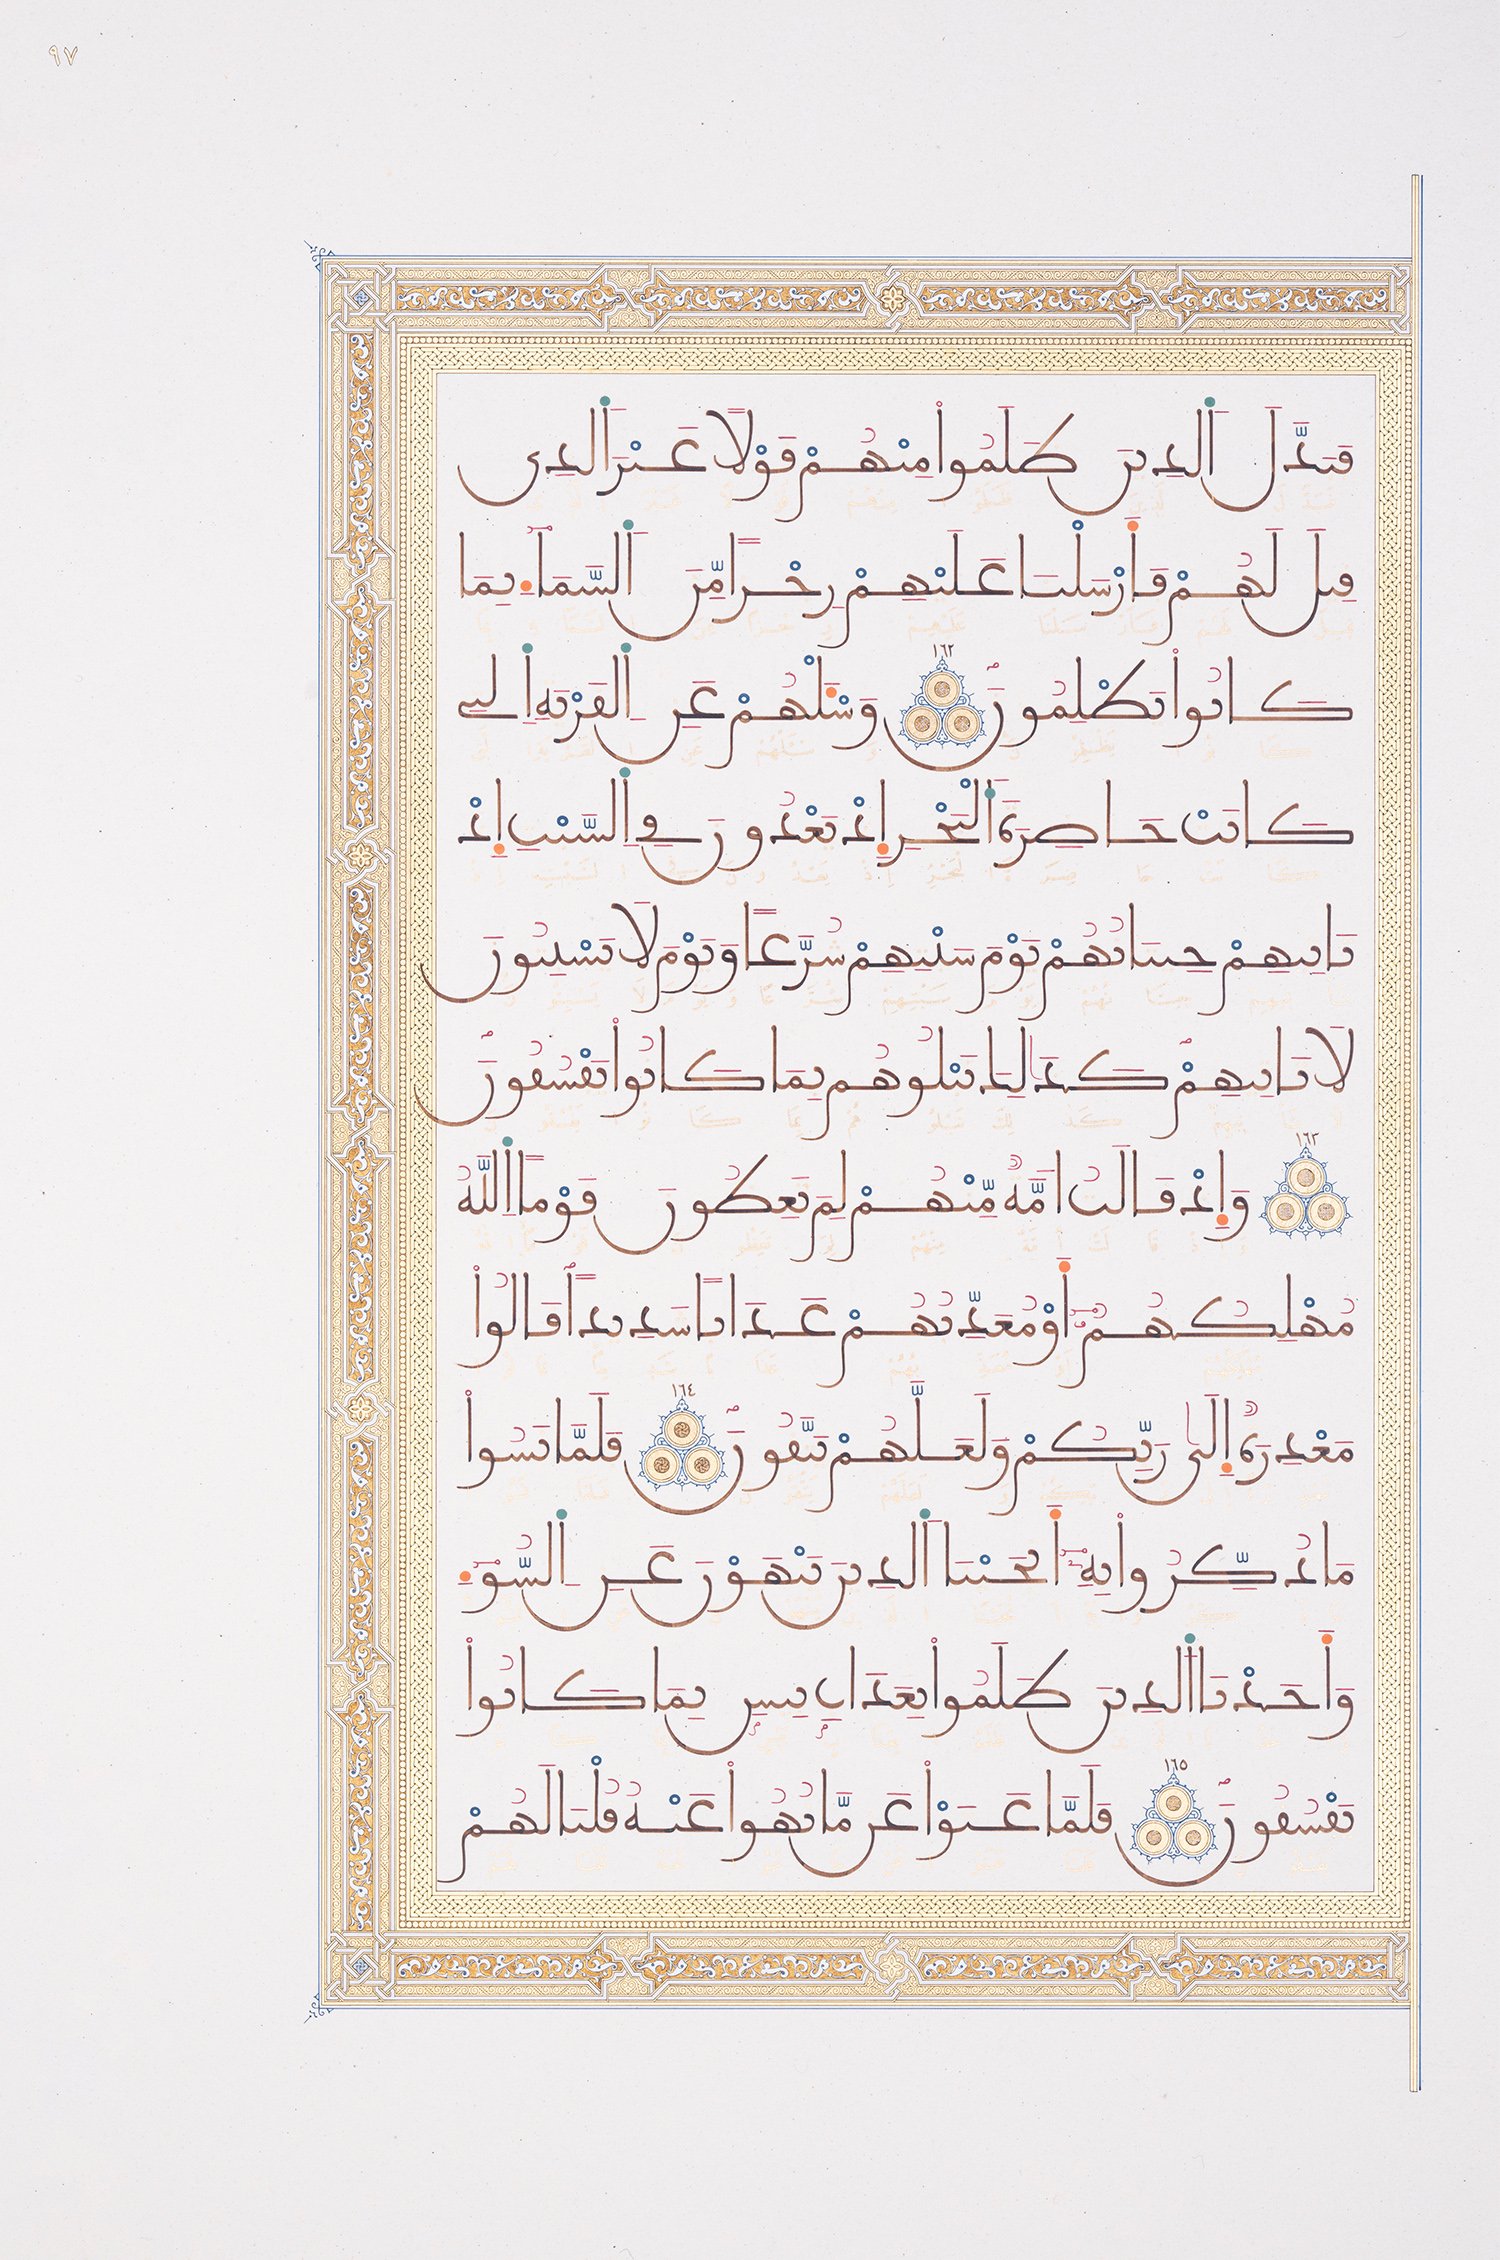 ٩٧
فبدل الذين ظلموا منهم قولا غير الذي
قيل لهم فأرسلنا عليهم رجزا من السماء بما
كانوا يظلمون ١٦٢ وسئلهم عن القرية التي
كانت حاضرة البحر إذ يعدون في السبت إذ
تاتيهم حيتانهم يوم سبتهم شرعا ويوم لا يسبتون
لا تاتيهم كذالك نبلوهم بما كانوا يفسقون
١٦٣ وإذ قالت امة منهم لم تعظون قوما الله
مهلكهم أو معذبهم عذابا شديدا قالوا
معذرة إلى ربكم ولعلهم يتقون ١٦٤ فلما نسوا
ما ذكروا به أنجينا الذين ينهون عن السوء
وأخذنا الذين ظلموا بعذاب بيس بما كانوا
يفسقون ١٦٥ فلما عتوا عن ما نهوا عنه قلنا لهم